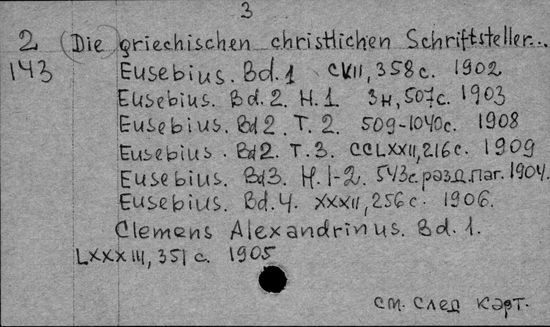 3
2 (Die) griechischen christlichen Schriftsteller...
143 Eusebius. Bd. 1 CVII, 358 с. 1902
Eusebius. Bd. 2. H. 1 3н, 507с. 1903
Eusebius. Bd 2. T. 2. 509-1040с. 1908
Eusebius. Bd 2. T. 3. CCLXXII, 216 с. 1909
Eusebius. Bd 3. H. 1-2. 543с. разд. паг. 1904.
Eusebius. Bd. 4. XXXII, 256 с. 1906.
Clemens Alexandrinus. Bd. 1.
LXXXIII, 351 с. 1905
см. след карт.